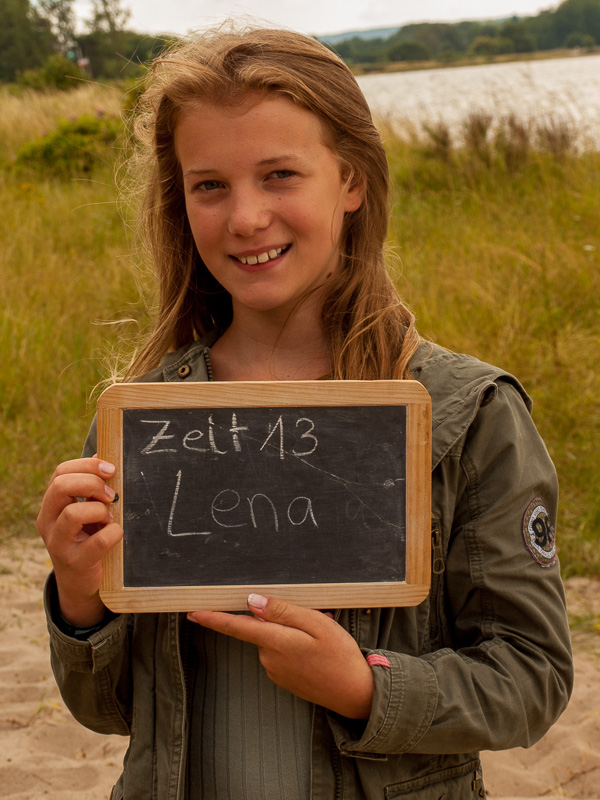 Zelt 13
Lena